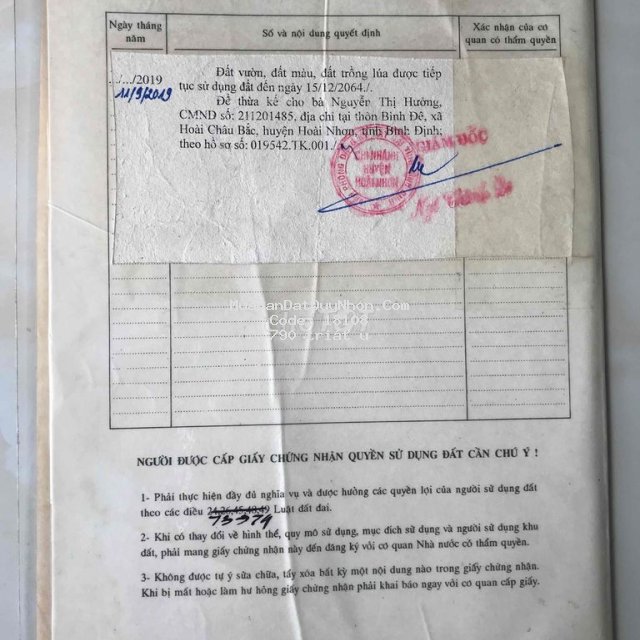 Ngày tháng năm
Số và nội dung quyết định
Xác nhận của cơ quan có thẩm quyền
.../.../2019
11/9/2019
Đất vườn, đất màu, đất trồng lúa được tiếp
tục sử dụng đất đến ngày 15/12/2064./.
Để thừa kế cho bà Nguyễn Thị Hường,
CMND số: 211201485, địa chỉ tại thôn Bình Đê, xã
Hoài Châu Bắc, huyện Hoài Nhơn, tỉnh Bình Định;
theo hồ sơ số: 019542.TK.001./.
GIÁM ĐỐC
CHI NHÁNH
HUYỆN
HOÀI NHƠN
MuaBanDatQuyNhon.Com
NGƯỜI ĐƯỢC CẤP GIẤY CHỨNG NHẬN QUYỀN SỬ DỤNG ĐẤT CẦN CHÚ Ý !
1- Phải thực hiện đầy đủ nghĩa vụ và được hưởng các quyền lợi của người sử dụng đất
theo các điều Luật đất đai.
73 & 79
2- Khi có thay đổi về hình thể, quy mô sử dụng, mục đích sử dụng và người sử dụng khu
đất, phải mang giấy chứng nhận này đến đăng ký với cơ quan Nhà nước có thẩm quyền.
3- Không được tự ý sửa chữa, tẩy xóa bất kỳ một nội dung nào trong giấy chứng nhận.
Khi bị mất hoặc làm hư hỏng giấy chứng nhận phải khai báo ngay với cơ quan cấp giấy.